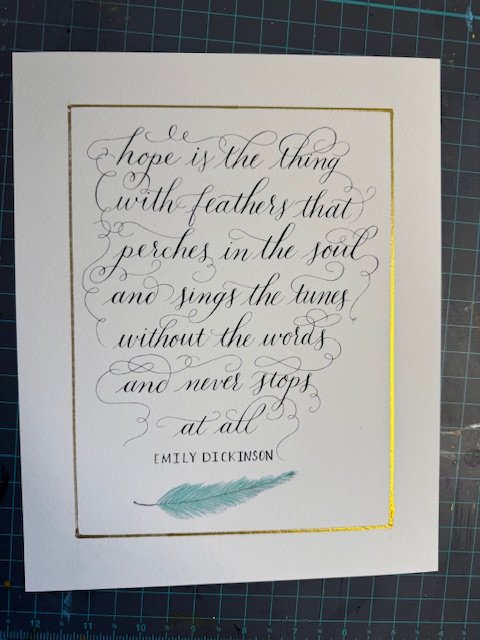 hope is the thing
with feathers that
perches in the soul
and sings the tunes
without the words
and never stops
at all
EMILY DICKINSON